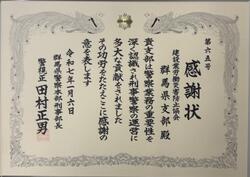 第六五号
感謝状
建設業労働災害防止協会
群馬県支部殿
貴支部は警察業務の重要性を
深く認識され刑事警察の運営に
多大な貢献をされました
その功労をたたえここに感謝の
意を表します
令和七年一月六日
群馬県警察本部刑事部長
警視正 田村正男